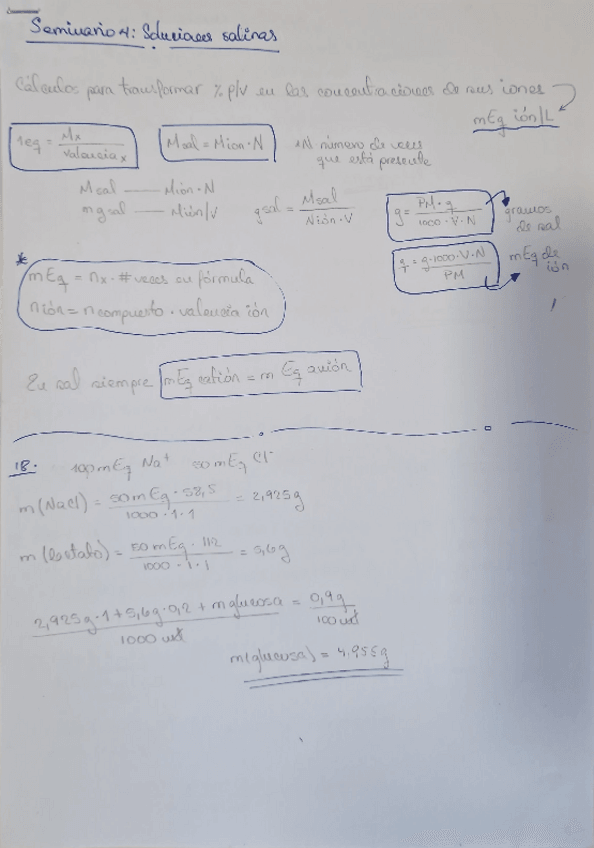 Seminario 4: Soluciones salinas
Cálculos para transformar % p/v en las concentraciones de sus iones
mEq ión/L
1eq = Mx / valencia x
Msal = Mion · N
N número de veces que está presente
Msal —— Mión · N
mg sal —— Mión/V
g sal = Msal / Nión · V
g = PM · q / 1000 · V · N
gramos de sal
q = g · 1000 · V · N / PM
mEq de ión
* mEq = nx · # veces en fórmula
n ión = n compuesto · valencia ión
En sal siempre mEq catión = mEq anión
18. 100mEq Na⁺ 50mEq Cl⁻
m(NaCl) = 50mEq · 58,5 / 1000 · 1 · 1 = 2,925g
m(lactato) = 50mEq · 112 / 1000 · 1 · 1 = 5,6g
2,925g · 1 + 5,6g · 0,2 + m glucosa / 1000 ml = 0,9g / 100 ml
m(glucosa) = 4,955g